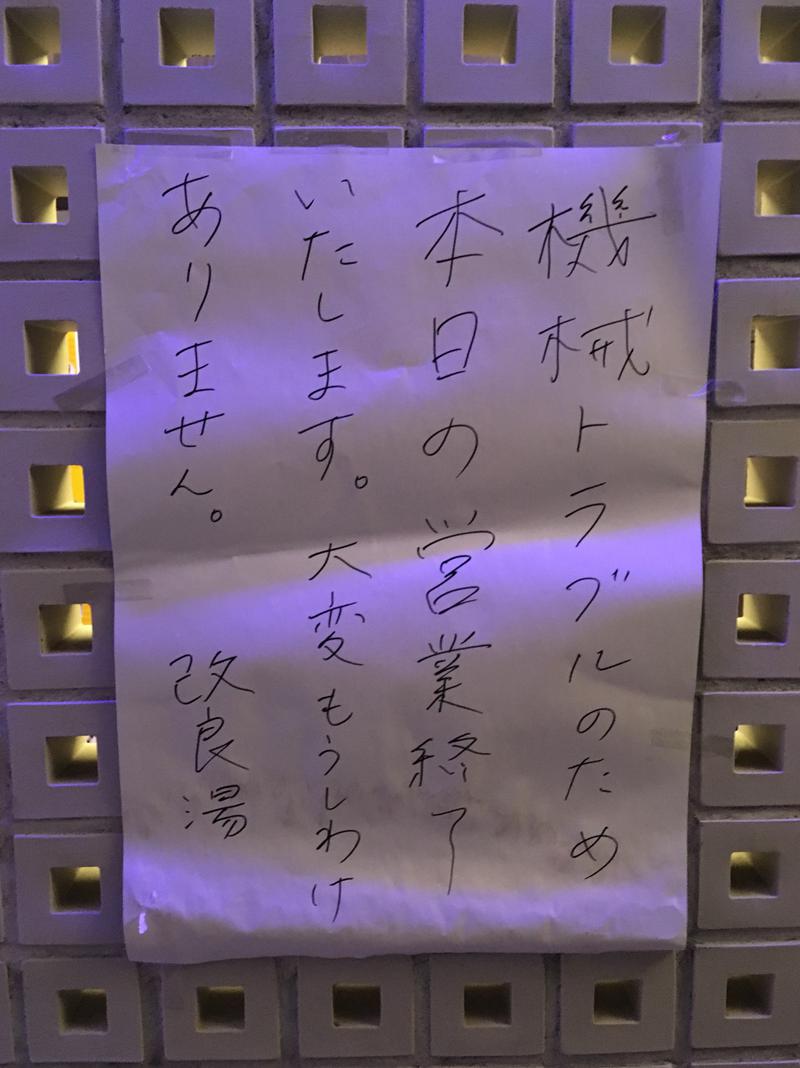 機械トラブルのため
本日の営業終了
いたします。大変もうしわけ
ありません。 改良湯